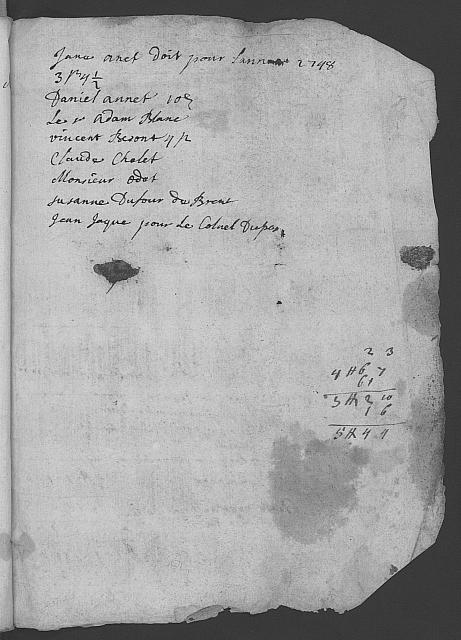 anet doit pour Lannee 1748
3 4 1/2
Daniel annet 10
Le Sr adam Blanc
vincent 4/2
Claude Cholet
Monsieur Odot
susanne Dufour de Brent
Jean Jaque pour Le Colnel
2 3
4 6 7
6 1
5 2 10
1 6
5 4 4